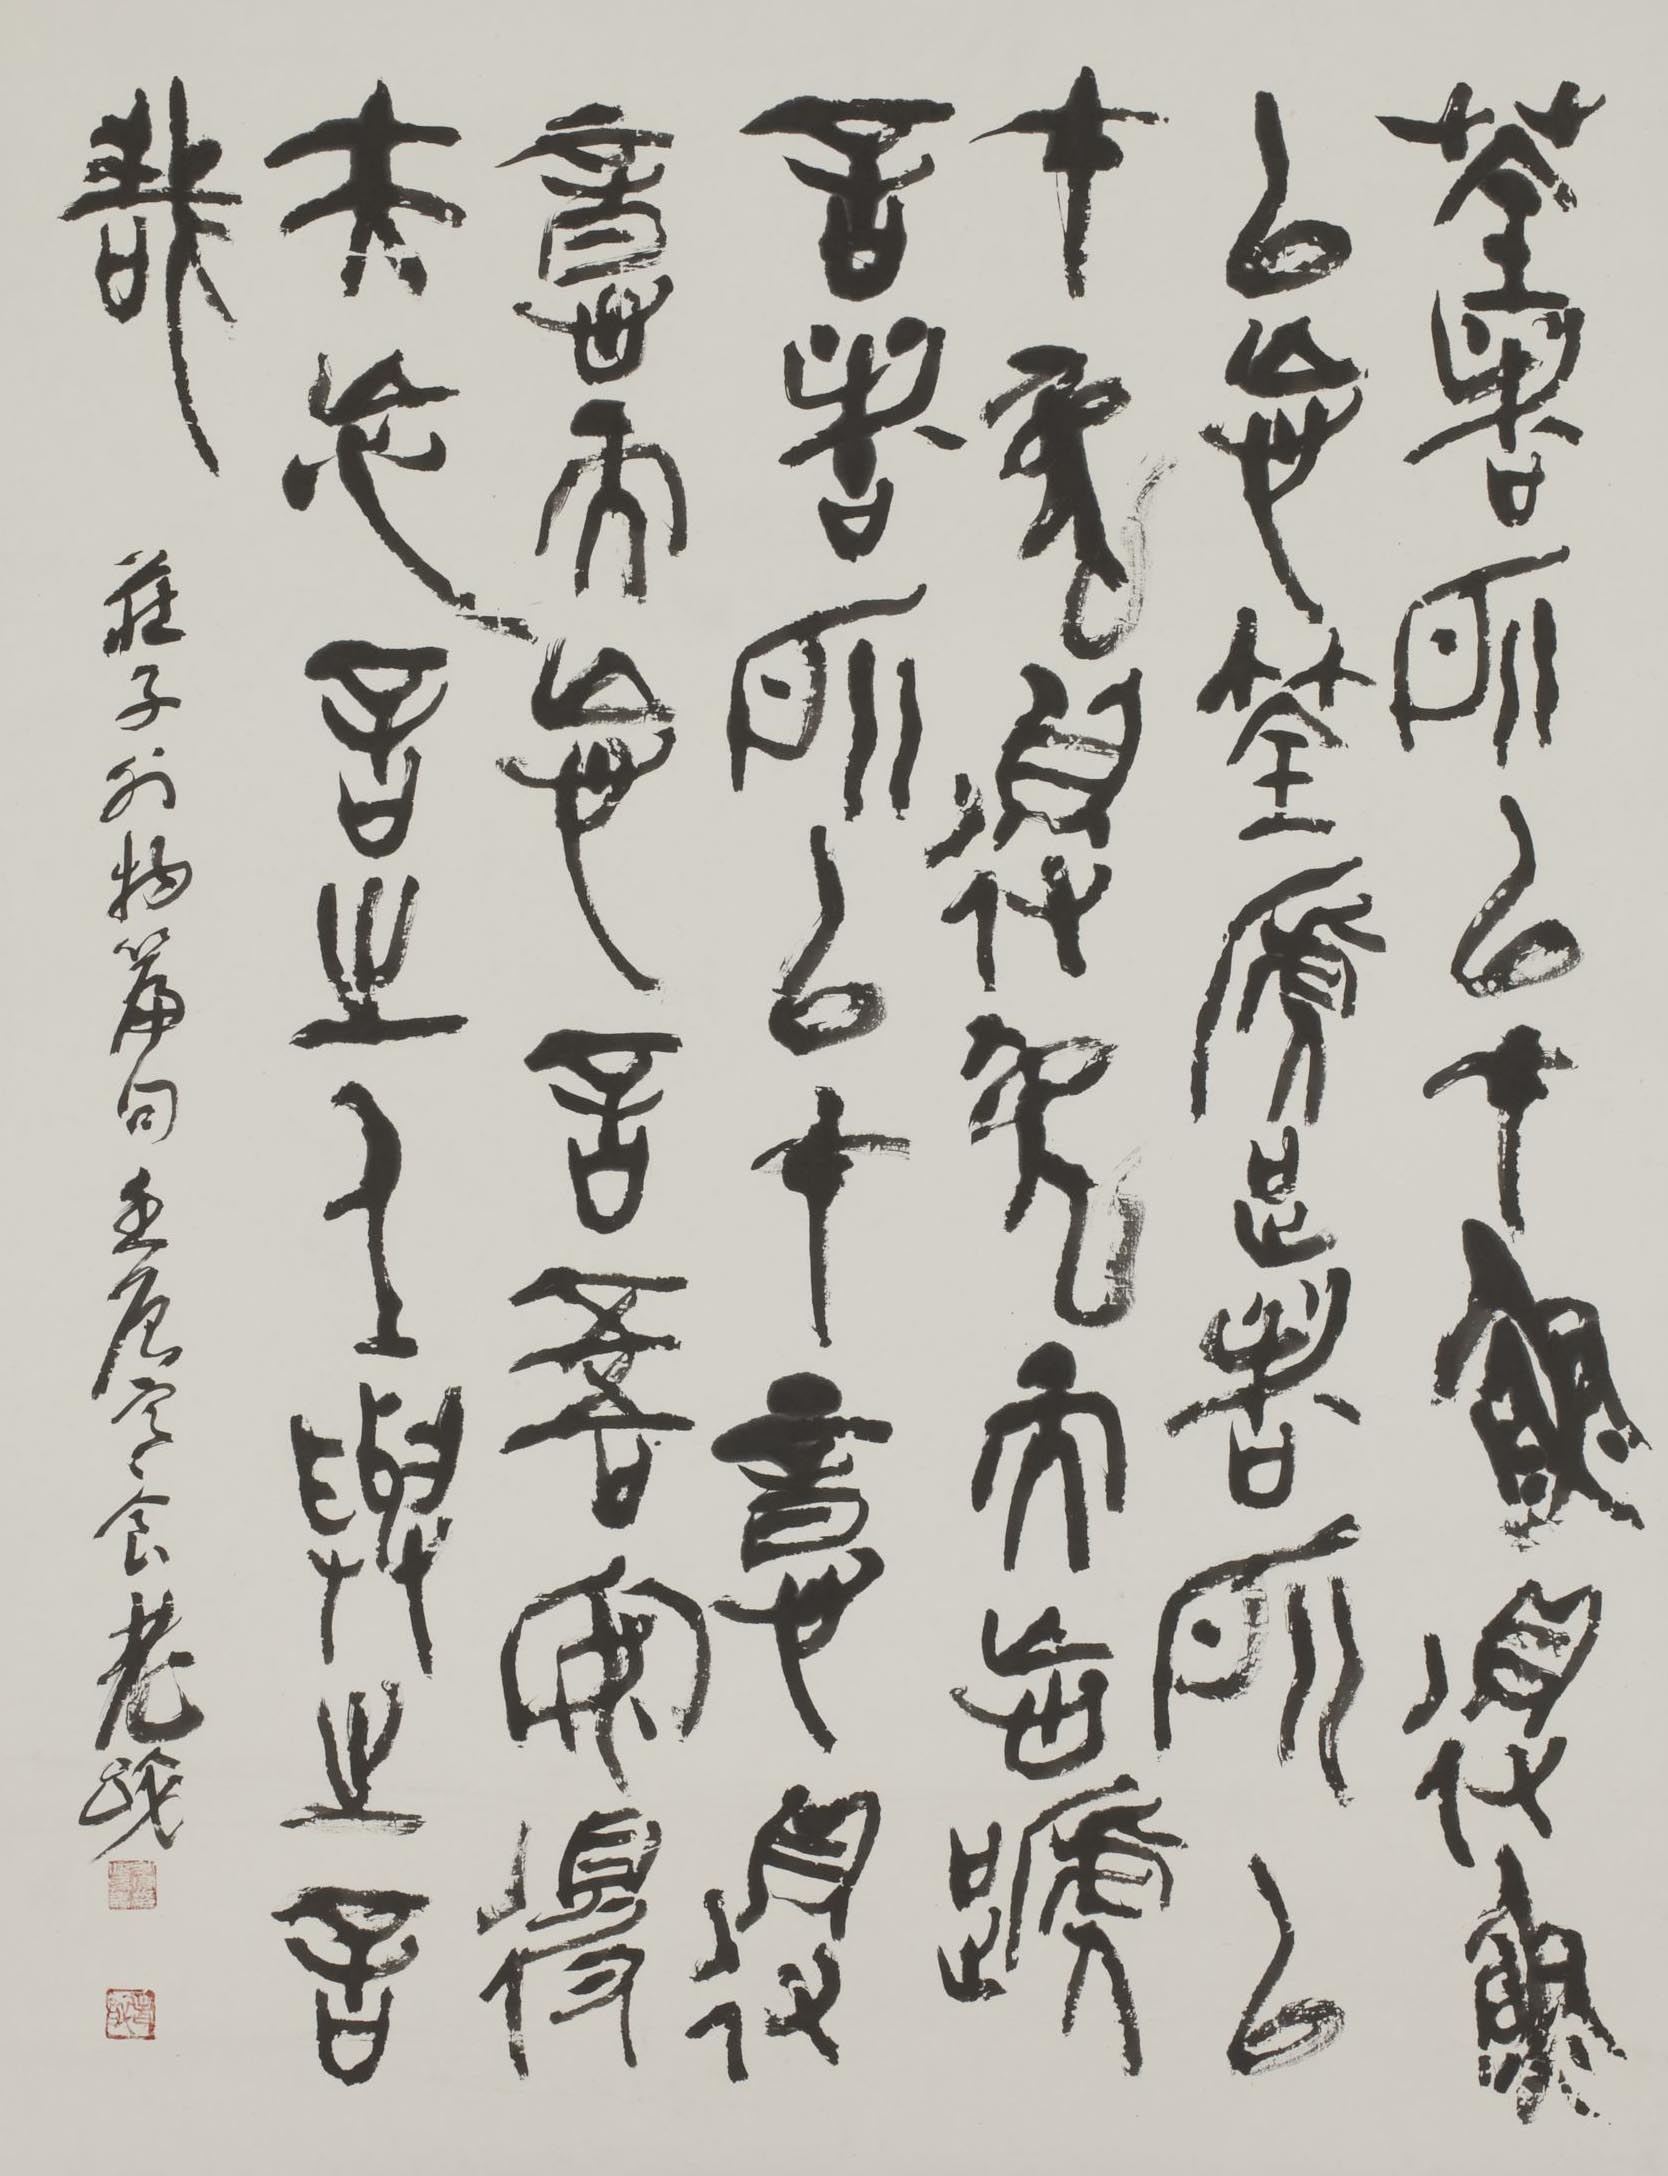 荃者所以在魚得魚
以忘荃蹏者所以
在兔得兔而忘蹏
言者所以在意得
意而忘言吾安得
夫忘言之人與之言
哉
莊子外物篇句 壬辰寒食 老